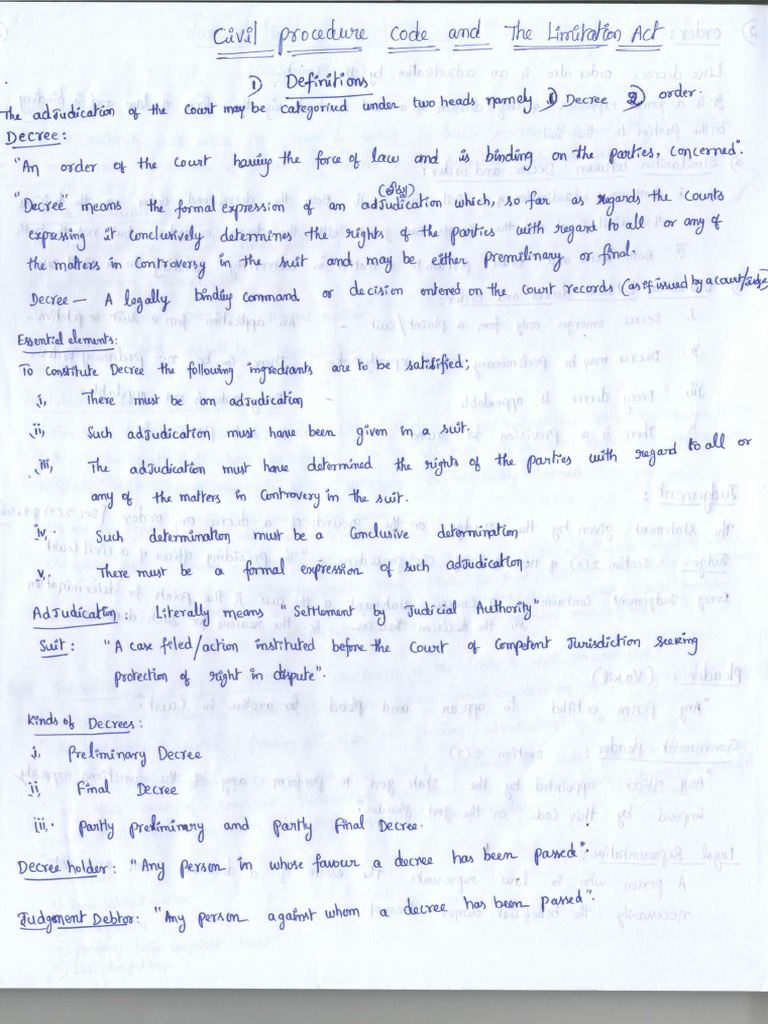 Civil Procedure Code and The Limitation Act
1) Definitions
The adjudication of the Court may be categorised under two heads namely 1) Decree 2) order.
Decree:
"An order of the Court having the force of law and is binding on the parties, concerned".
(தீர்ப்பு)
"Decree" means the formal expression of an adjudication which, so far as regards the Courts
expressing it conclusively determines the rights of the parties with regard to all or any of
the matters in controversy in the suit and may be either premilinary or final.
Decree — A legally binding command or decision entered on the court records (as if issued by a court/judge)
Essential elements:
To constitute Decree the following ingredients are to be satisfied;
i, There must be an adjudication
ii, Such adjudication must have been given in a suit.
iii, The adjudication must have determined the rights of the parties with regard to all or
any of the matters in controvery in the suit.
iv, Such determination must be a Conclusive determination
v, There must be a formal expression of such adjudication.
Adjudication: Literally means "Settlement by Judicial Authority"
Suit: "A case filed/action instituted before the Court of Competent Jurisdiction seeking
protection of right in dispute".
Kinds of Decrees:
i, Preliminary Decree
ii, Final Decree
iii, Partly preliminary and partly Final Decree.
Decree holder: "Any person in whose favour a decree has been passed".
Judgement Debtor: "Any person against whom a decree has been passed".